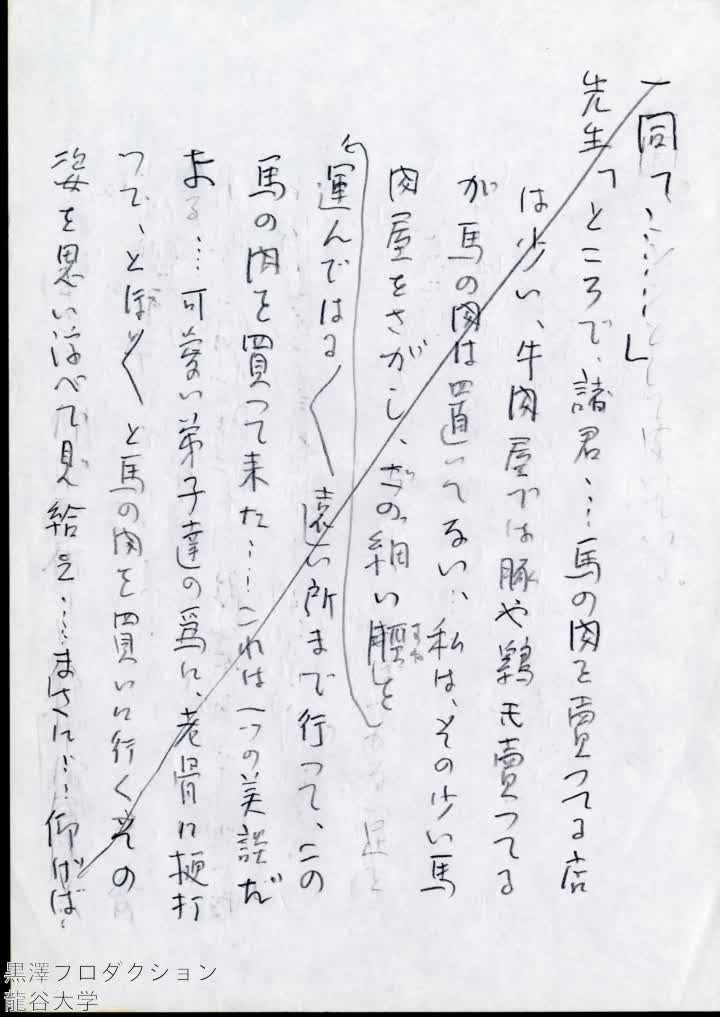 一同て、……」
先生「ところで、諸君…馬の肉を売つてる店
は少い、牛肉屋では豚や鶏も売つてる
が馬の肉は置いてない…私は、その少い馬
肉屋をさがし、この細い脛を
運んではる〱遠い所まで行つて、この
馬の肉を買つて来た……これは一つの美談だ
よ……可愛い弟子達の為に、老骨に梗打
つて、とぼ〱と馬の肉を買いに行くその
姿を思い浮べて見給え……まさに……仰げば…
黒澤プロダクション
龍谷大学